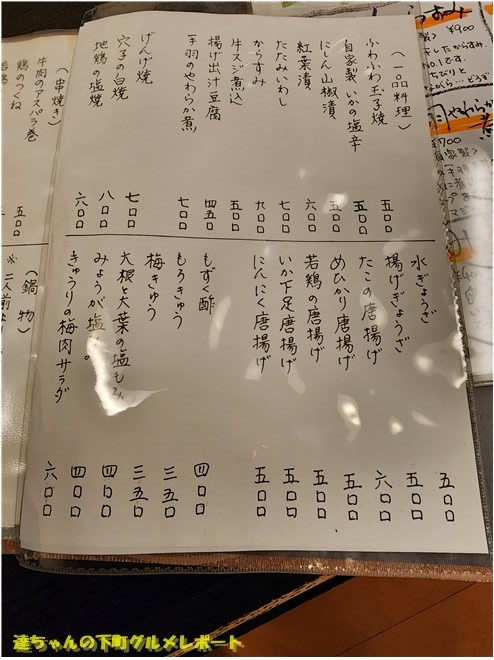 (一品料理)
ふわふわ玉子焼 五〇〇
自家製いかの塩辛 五〇〇
にしん山椒漬 五〇〇
紅葉漬 六〇〇
たたみいわし 七〇〇
からすみ 九〇〇
牛スジ煮込 五〇〇
揚げ出汁豆腐 四五〇
手羽のやわらか煮 七〇〇
げんげ焼 七〇〇
穴子の白焼 八〇〇
地鶏の塩焼 六〇〇
水ぎょうざ 五〇〇
揚げぎょうざ 五〇〇
たこの唐揚げ 六〇〇
めひかり唐揚げ 五〇〇
若鶏の唐揚げ 五〇〇
いか下足唐揚げ 五〇〇
にんにく唐揚げ 五〇〇
もずく酢 四〇〇
もろきゅう 三五〇
梅きゅう 三五〇
大根と大葉の塩もみ 四〇〇
みょうが塩 四〇〇
きゅうりの梅肉サラダ 六〇〇
(串焼き)
牛肉のアスパラ巻
鶏のつくね
(鍋物)
※二人前
¥900
達ちゃんの下町グルメレポート